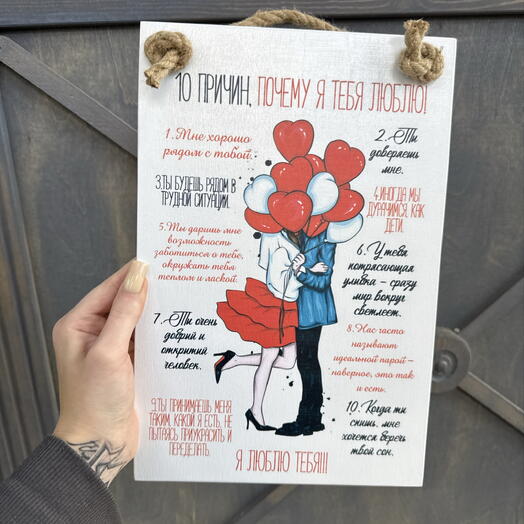 10 ПРИЧИН, ПОЧЕМУ Я ТЕБЯ ЛЮБЛЮ!
1. Мне хорошо
рядом с тобой.
2. Ты
доверяешь
мне.
3.ТЫ БУДЕШЬ РЯДОМ В
ТРУДНОЙ СИТУАЦИИ.
4.ИНОГДА МЫ
ДУРАЧИМСЯ, КАК
ДЕТИ.
5. Ты даришь мне
возможность
заботиться о тебе,
окружать тебя
теплом и лаской.
6. У тебя
потрясающая
улыбка - сразу
мир вокруг
светлеет.
7. Ты очень
добрий и
откритий
человек.
8.Нас часто
называют
идеальной парой -
наверное, это так
и есть.
9.ТЫ ПРИНИМАЕШЬ МЕНЯ
ТАКИМ, КАКОЙ Я ЕСТЬ, НЕ
ПЫТАЯСЬ ПРИУКРАСИТЬ И
ПЕРЕДЕЛАТЬ.
10. Когда ты
спишь, мне
хочется беречь
твой сон.
Я ЛЮБЛЮ ТЕБЯ!!!